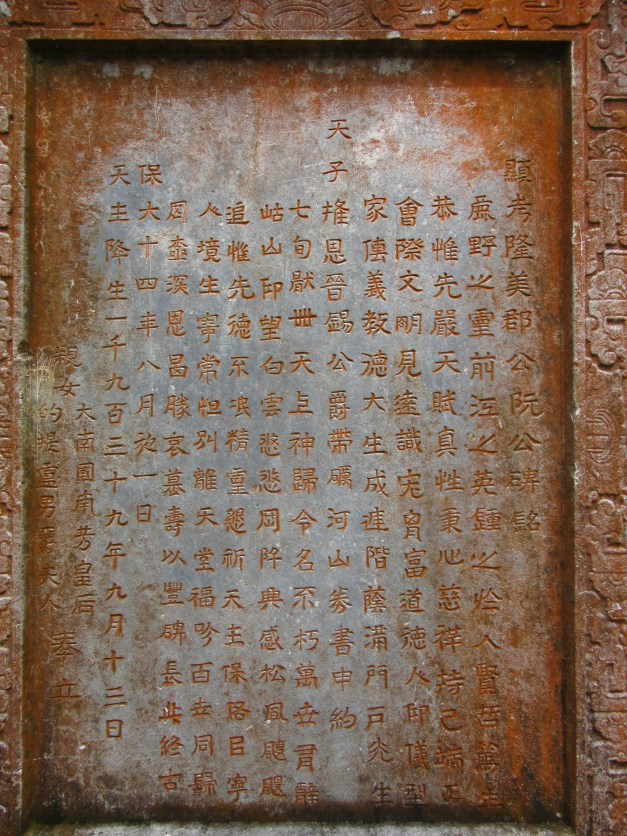 顯考隆美郡公阮公碑銘
鹿野之靈前江之英鍾之於人賢哲篤生
恭惟先嚴天賦真性秉心慈祥持己端正
會際文明見遠識宏胷富道德人仰儀型
家傳義教德大生成連階蔭滿門戶光生
天子推恩晉錫公爵帶礪河山券書申約
七旬厭世天上神歸令名不朽萬世
岵山仰望白雲愁愁岡阡興感松風颼颼
追惟先德精重懇祈天主保佑寧
人境生寧常怛別離天堂福百世同歸
罔極深恩曷勝哀慕壽以豐碑長此終古
保大十四年八月初一日
天主降生一千九百三十九年九月十二日
親女
大南國南芳皇后
的提靈男爵夫人
奉立